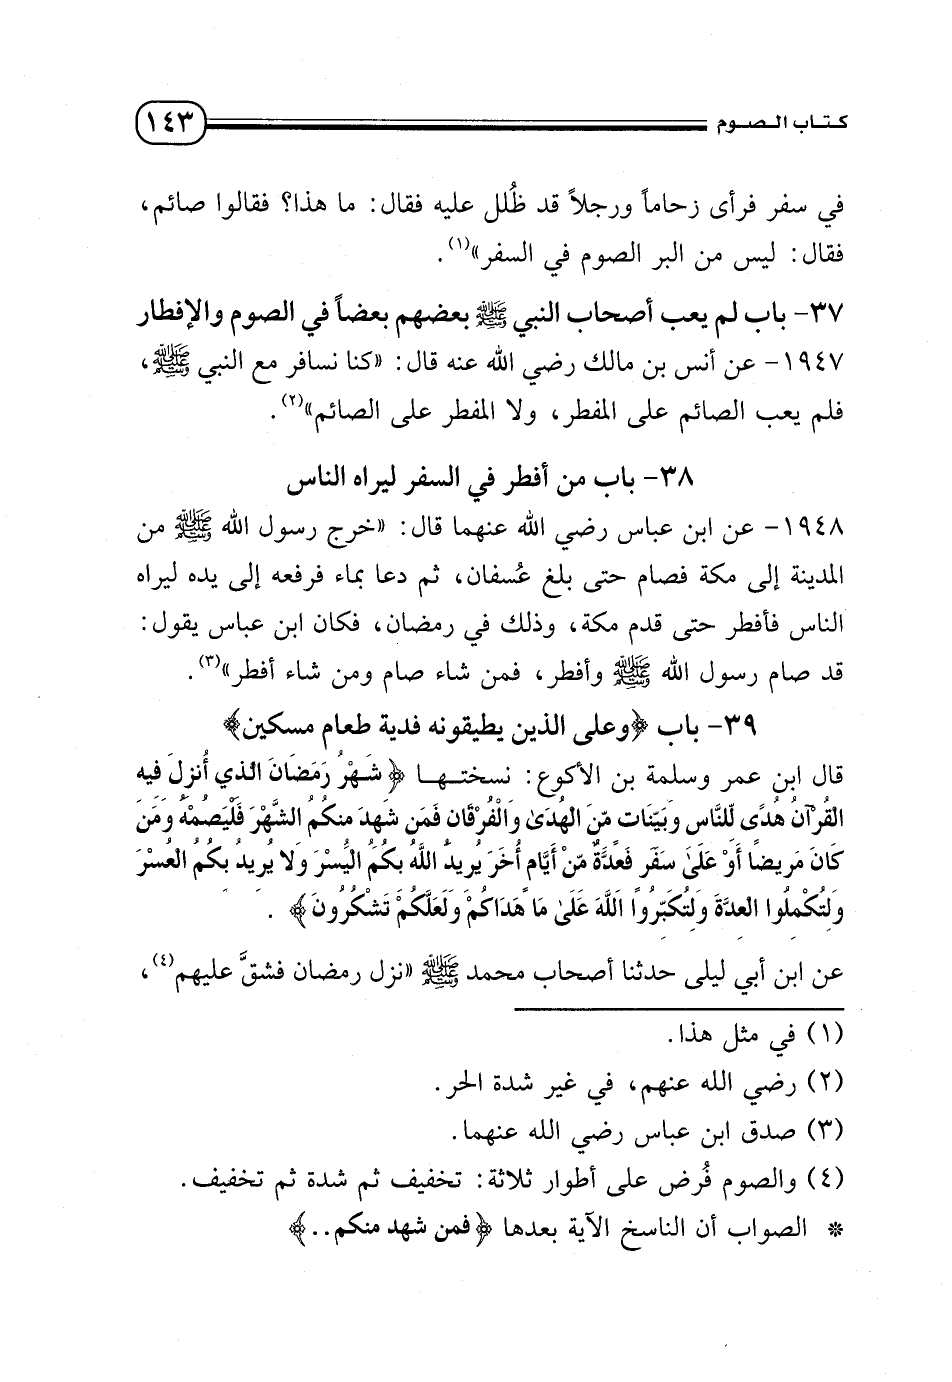 كتاب الصوم ١٤٣
في سفر فرأى زحاماً ورجلاً قد ظُلل عليه فقال: ما هذا؟ فقالوا صائم،
فقال: ليس من البر الصوم في السفر»(١).
٣٧- باب لم يعب أصحاب النبي ﷺ بعضهم بعضاً في الصوم والإفطار
١٩٤٧- عن أنس بن مالك رضي الله عنه قال: «كنا نسافر مع النبي ﷺ،
فلم يعب الصائم على المفطر، ولا المفطر على الصائم»(٢).
٣٨- باب من أفطر في السفر ليراه الناس
١٩٤٨- عن ابن عباس رضي الله عنهما قال: «خرج رسول الله ﷺ من
المدينة إلى مكة فصام حتى بلغ عُسفان، ثم دعا بماء فرفعه إلى يده ليراه
الناس فأفطر حتى قدم مكة، وذلك في رمضان، فكان ابن عباس يقول:
قد صام رسول الله ﷺ وأفطر، فمن شاء صام ومن شاء أفطر»(٣).
٣٩- باب ﴿وعلى الذين يطيقونه فدية طعام مسكين﴾
قال ابن عمر وسلمة بن الأكوع: نسختها ﴿شَهْرُ رَمَضَانَ الَّذِي أُنزِلَ فِيهِ
الْقُرْآنُ هُدًى لِّلنَّاسِ وَبَيِّنَاتٍ مِّنَ الْهُدَىٰ وَالْفُرْقَانِ فَمَن شَهِدَ مِنكُمُ الشَّهْرَ فَلْيَصُمْهُ وَمَن
كَانَ مَرِيضًا أَوْ عَلَىٰ سَفَرٍ فَعِدَّةٌ مِّنْ أَيَّامٍ أُخَرَ يُرِيدُ اللَّهُ بِكُمُ الْيُسْرَ وَلَا يُرِيدُ بِكُمُ الْعُسْرَ
وَلِتُكْمِلُوا الْعِدَّةَ وَلِتُكَبِّرُوا اللَّهَ عَلَىٰ مَا هَدَاكُمْ وَلَعَلَّكُمْ تَشْكُرُونَ﴾.
عن ابن أبي ليلى حدثنا أصحاب محمد ﷺ «نزل رمضان فشقَّ عليهم(٤)،
(١) في مثل هذا.
(٢) رضي الله عنهم، في غير شدة الحر.
(٣) صدق ابن عباس رضي الله عنهما.
(٤) والصوم فُرض على أطوار ثلاثة: تخفيف ثم شدة ثم تخفيف.
* الصواب أن الناسخ الآية بعدها ﴿فمن شهد منكم..﴾